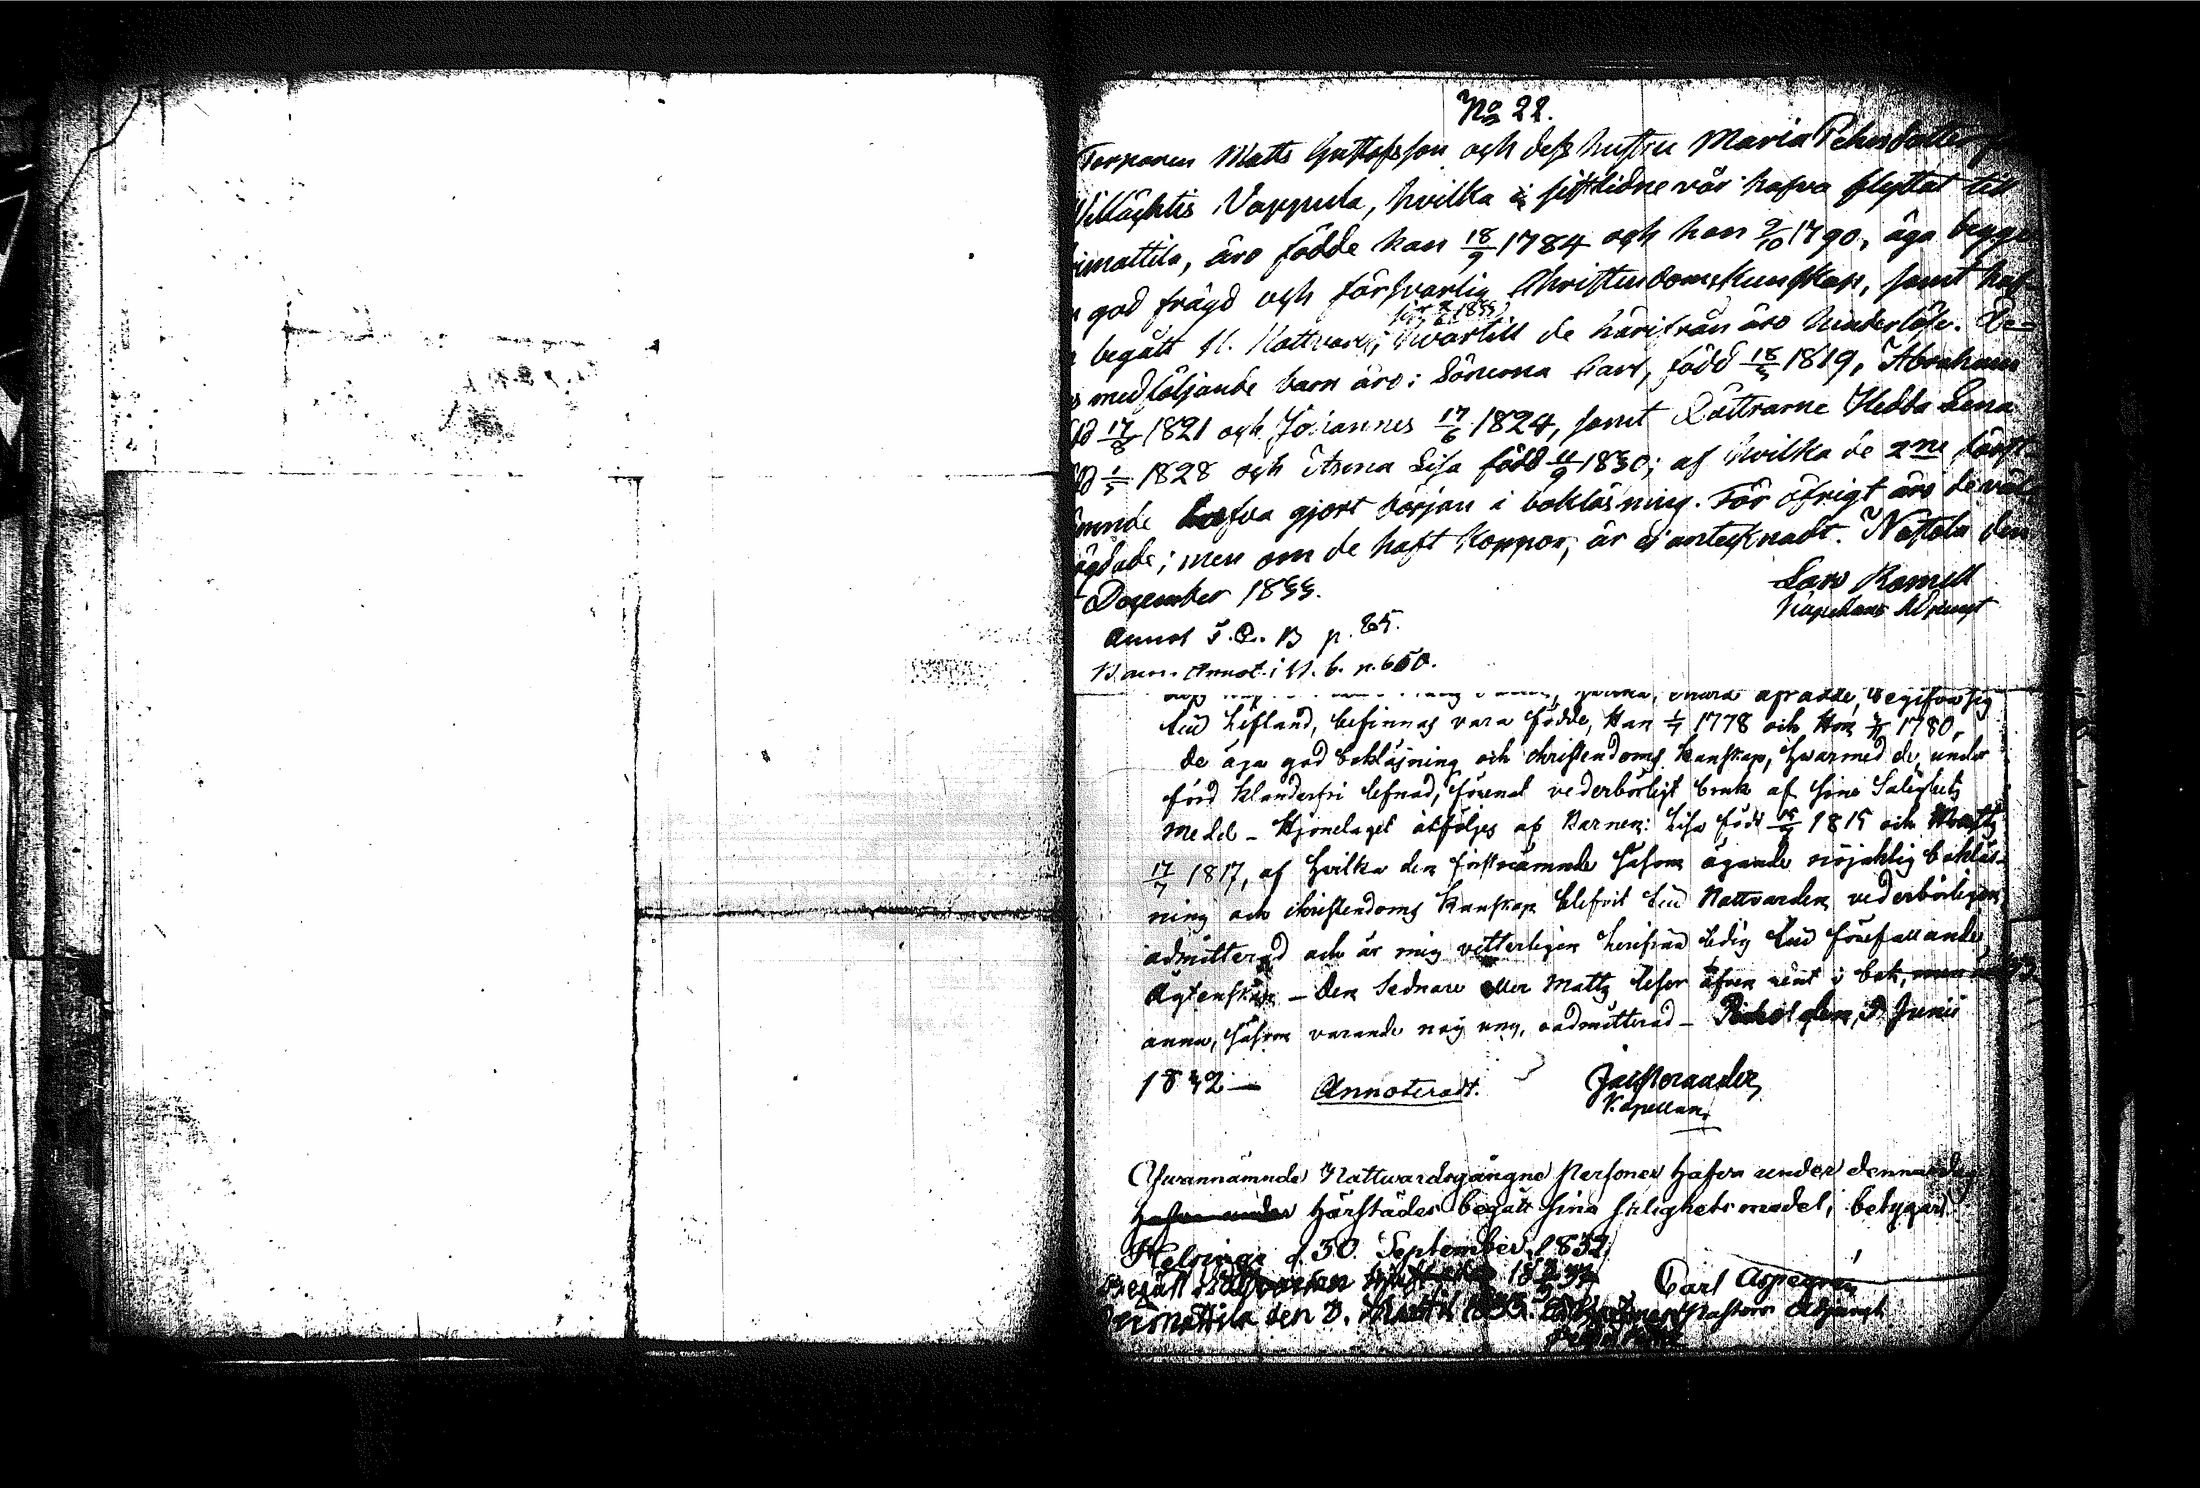 No 22.
Torparen Matts Gustafsson och dess hustru Maria Pehrsdotter
Villächtis Vappula, hvilka i sistlidne vår hafva flyttat till
imattila, äro födde han 18/9 1784 och hon 9/10 1790, äga begge
god frägd och försvarlig Christendomskunskap, samt haf-
begått H. Nattvard, hvartill de härifrån äro hinderlöse. De-
s medföljande barn äro: Sönerna Carl, född 18/5 1819, Abraham
17/8 1821 och Johannes 17/6 1824, samt Döttrarne Hedda Lena
1828 och Anna Lisa född 11/9 1830; af hvilka de 2ne först-
ämnde hafva gjort början i bokläsning. För öfrigt äro de väl
ägdade; men om de haft koppor, är ej antecknadt. Nastola den
December 1833.
Lars Ramell
Kapellans Adjunct
Annot. S. B. p. 85.
Annot. i H. b. p. 650.
begifva sig
till Lifland, befinnas vara födde, Han 1778 och Hon 1780,
de äga god bokläsning och christendoms kunskap, hvarmed de, under
förd klanderfri lefnad, förenat vederbörligt bruk af sine Salighets
medel – Hjonelaget åtföljes af Barnen: Lisa född 1815 och Matts
17/7 1817, af hvilka den förstnämnde såsom ägande nöjaktig bokläs-
ning och christendoms kunskap blefvit till Nattvarden vederbörligen
admitterad och är mig vitterligen herifrån ledig till förefallande
ägtenskap – den sednare eller Matts läser äfven rent i bok,
anna, såsom varande nog ung, oadmitterad – den 3 Junii
1832 – Annoteradt.
Kapellan
Ofvannämnde Nattvardsgångne Personer hafva under denna dag
härstädes begått sina salighetsmedel; betygar
Helsinge d 30 September 1832
Carl Aspegren
Pastors Adjunct
Begått Nattvarden
den 3. Martii 1833.